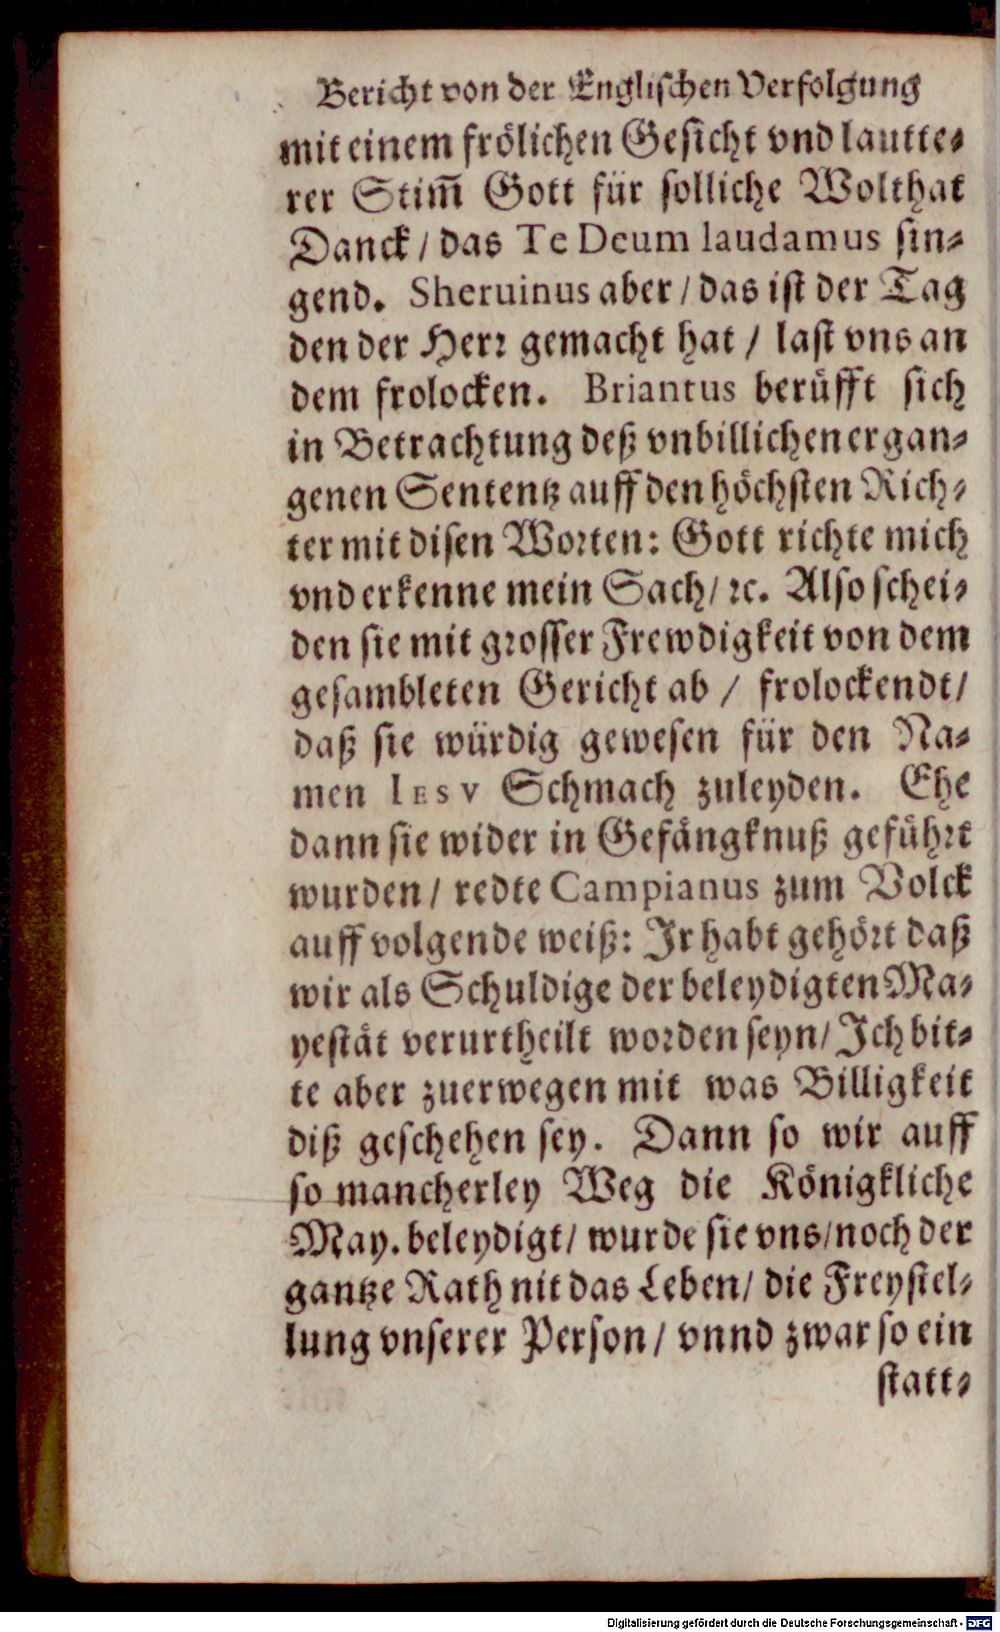 Bericht von der Englischen Verfolgung
mit einem frölichen Gesicht vnd lautte-
rer Stim̃ Gott für solliche Wolthat
Danck / das Te Deum laudamus sin-
gend. Sheruinus aber / das ist der Tag
den der Herr gemacht hat / last vns an
dem frolocken. Briantus berüfft sich
in Betrachtung deß vnbillichen ergan-
genen Sententz auff den höchsten Rich-
ter mit disen Worten: Gott richte mich
vnd erkenne mein Sach / ꝛc. Also schei-
den sie mit grosser Frewdigkeit von dem
gesambleten Gericht ab / frolockendt /
daß sie würdig gewesen für den Na-
men IESV Schmach zuleyden. Ehe
dann sie wider in Gefängknuß geführt
wurden / redte Campianus zum Volck
auff volgende weiß: Ir habt gehört daß
wir als Schuldige der beleydigten Ma-
yestät verurtheilt worden seyn / Ich bit-
te aber zuerwegen mit was Billigkeit
diß geschehen sey. Dann so wir auff
so mancherley Weg die Königkliche
May. beleydigt / wurde sie vns / noch der
gantze Rath nit das Leben / die Freystel-
lung vnserer Person / vnnd zwar so ein
statt-
Digitalisierung gefördert durch die Deutsche Forschungsgemeinschaft - DFG